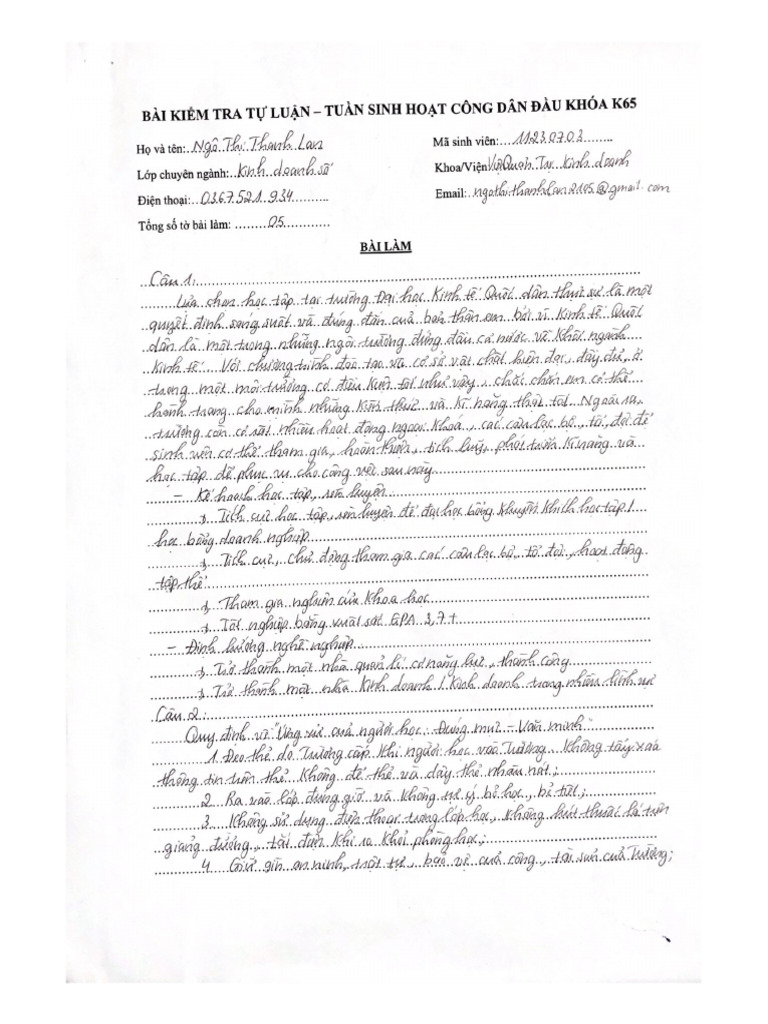 BÀI KIỂM TRA TỰ LUẬN – TUẦN SINH HOẠT CÔNG DÂN ĐẦU KHÓA K65
Họ và tên: Ngô Thị Thanh Lan Mã sinh viên: 11230703
Lớp chuyên ngành: Kinh doanh số Khoa/Viện Viện Quản Trị Kinh doanh
Điện thoại: 0367521934 Email: ngothithanhlan2105@gmail.com
Tổng số tờ bài làm: 05
BÀI LÀM
Câu 1:
Lựa chọn học tập tại trường Đại học Kinh tế Quốc dân thực sự là một
quyết định sáng suốt và đúng đắn của bản thân em bởi vì Kinh tế Quốc
dân là một trong những ngôi trường đứng đầu cả nước về khối ngành
kinh tế. Với chương trình đào tạo và cơ sở vật chất hiện đại, đầy đủ, ở
trong một môi trường có điều kiện tốt như vậy, chắc chắn em có thể
hành trang cho mình những kiến thức và kĩ năng thật tốt. Ngoài ra,
trường còn có rất nhiều hoạt động ngoại khoá, các câu lạc bộ, tổ, đội để
sinh viên có thể tham gia, hoàn thiện, tích luỹ, phát triển kĩ năng và
học tập để phục vụ cho công việc sau này.
- Kế hoạch học tập, rèn luyện:
+ Tích cực học tập, rèn luyện để đạt học bổng khuyến khích học tập /
học bổng doanh nghiệp
+ Tích cực, chủ động tham gia các câu lạc bộ, tổ đội, hoạt động
tập thể
+ Tham gia nghiên cứu khoa học
+ Tốt nghiệp bằng xuất sắc GPA 3,7+
- Định hướng nghề nghiệp
+ Trở thành một nhà quản lí có năng lực, thành công
+ Trở thành một nhà kinh doanh / kinh doanh trong nhiều lĩnh vực
Câu 2:
Quy định về "Ứng xử của người học: Đúng mực - Văn minh"
1. Đeo thẻ do Trường cấp khi người học vào Trường. Không tẩy xoá
thông tin trên thẻ. Không để thẻ và dây thẻ nhàu nát;
2. Ra vào lớp đúng giờ và không tự ý bỏ học, bỏ tiết;
3. Không sử dụng điện thoại trong lớp học, không hút thuốc lá trên
giảng đường, tắt điện khi ra khỏi phòng học;
4. Giữ gìn an ninh, trật tự, bảo vệ của công, tài sản của Trường;